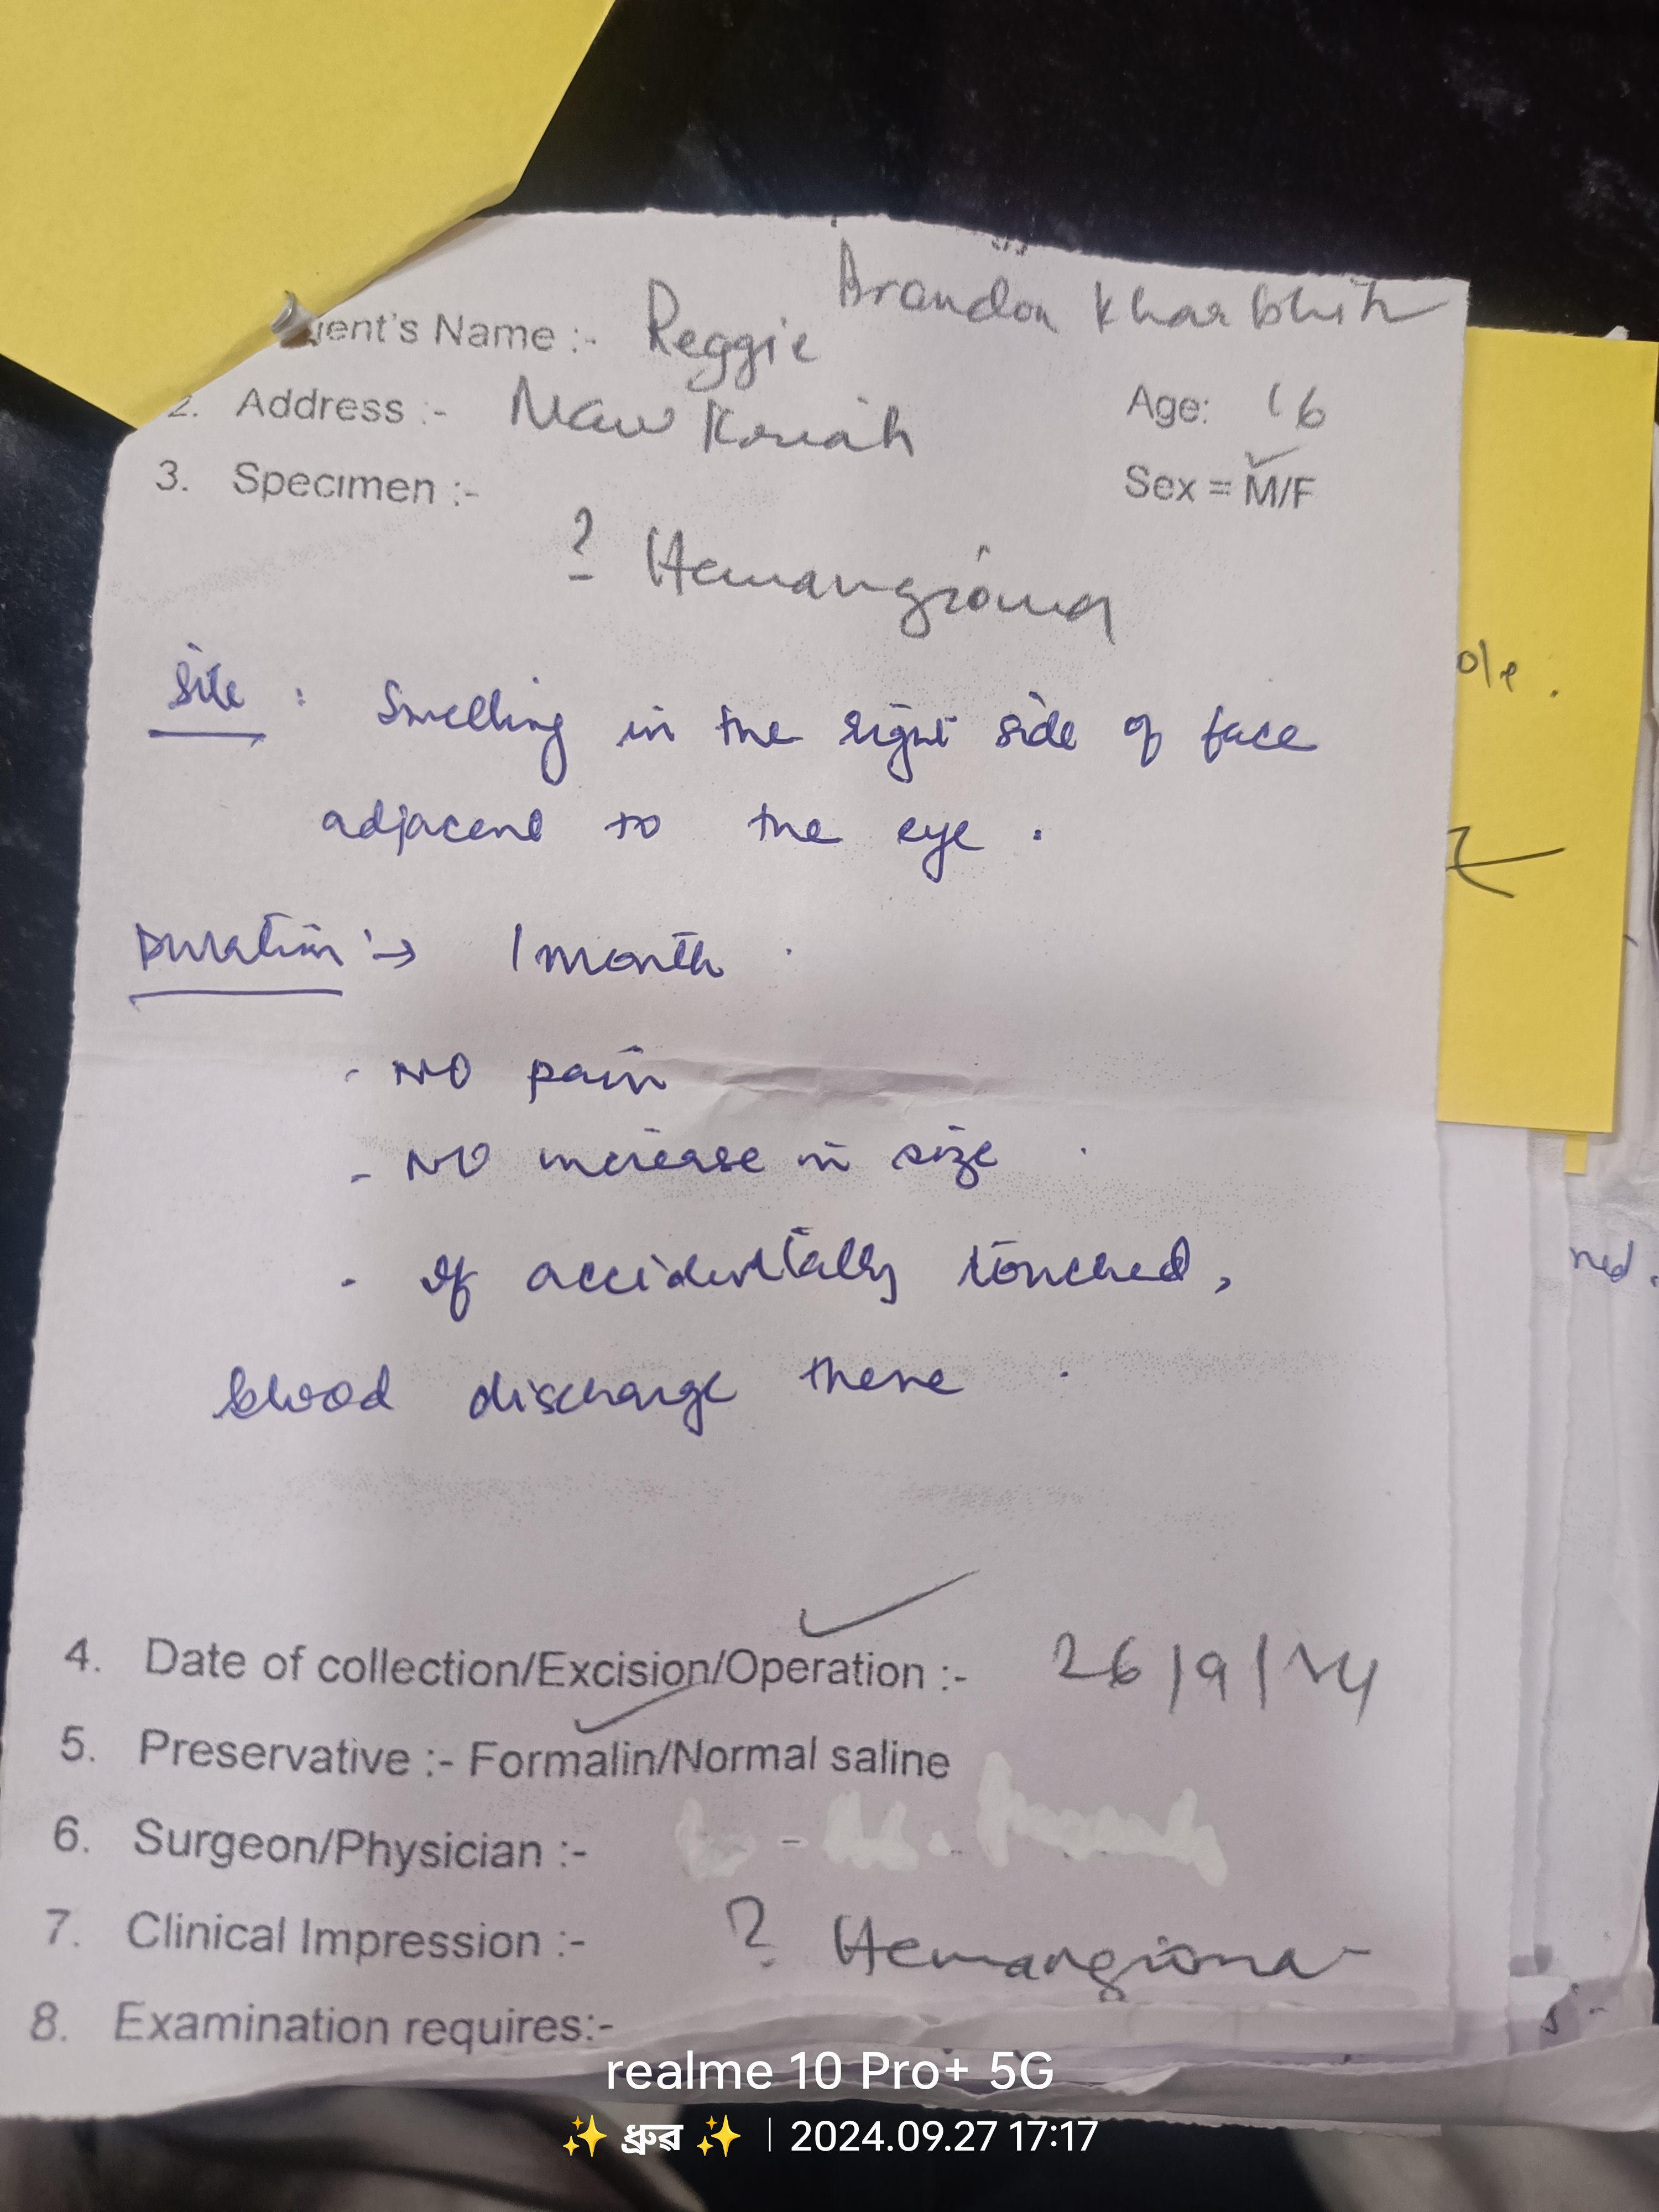 ient's Name :- Reggie Brandon Kharbhih
2. Address :- Mawkriah Age: 16
3. Specimen :- Sex = M/F
? Hemangioma
Site : Swelling in the right side of face
adjacent to the eye .
Duration :→ 1 month
- NO pain
- NO increase in size
- If accidentally touched,
blood discharge there
4. Date of collection/Excision/Operation :- 26/9/24
5. Preservative :- Formalin/Normal saline
6. Surgeon/Physician :-
7. Clinical Impression :- ? Hemangioma
8. Examination requires:-
realme 10 Pro+ 5G
✨ ধ্রুৱ ✨ | 2024.09.27 17:17